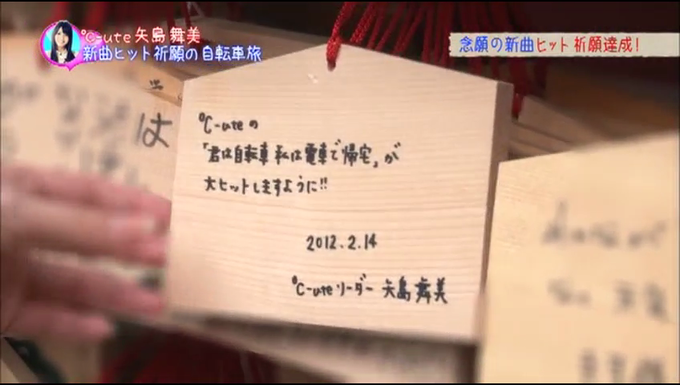 ℃-ute 矢島 舞美
新曲ヒット祈願の自転車旅
念願の新曲ヒット祈願達成!
℃-uteの
「君は自転車 私は電車で帰宅」が
大ヒットしますように!!
2012.2.14
℃-uteリーダー 矢島舞美
は